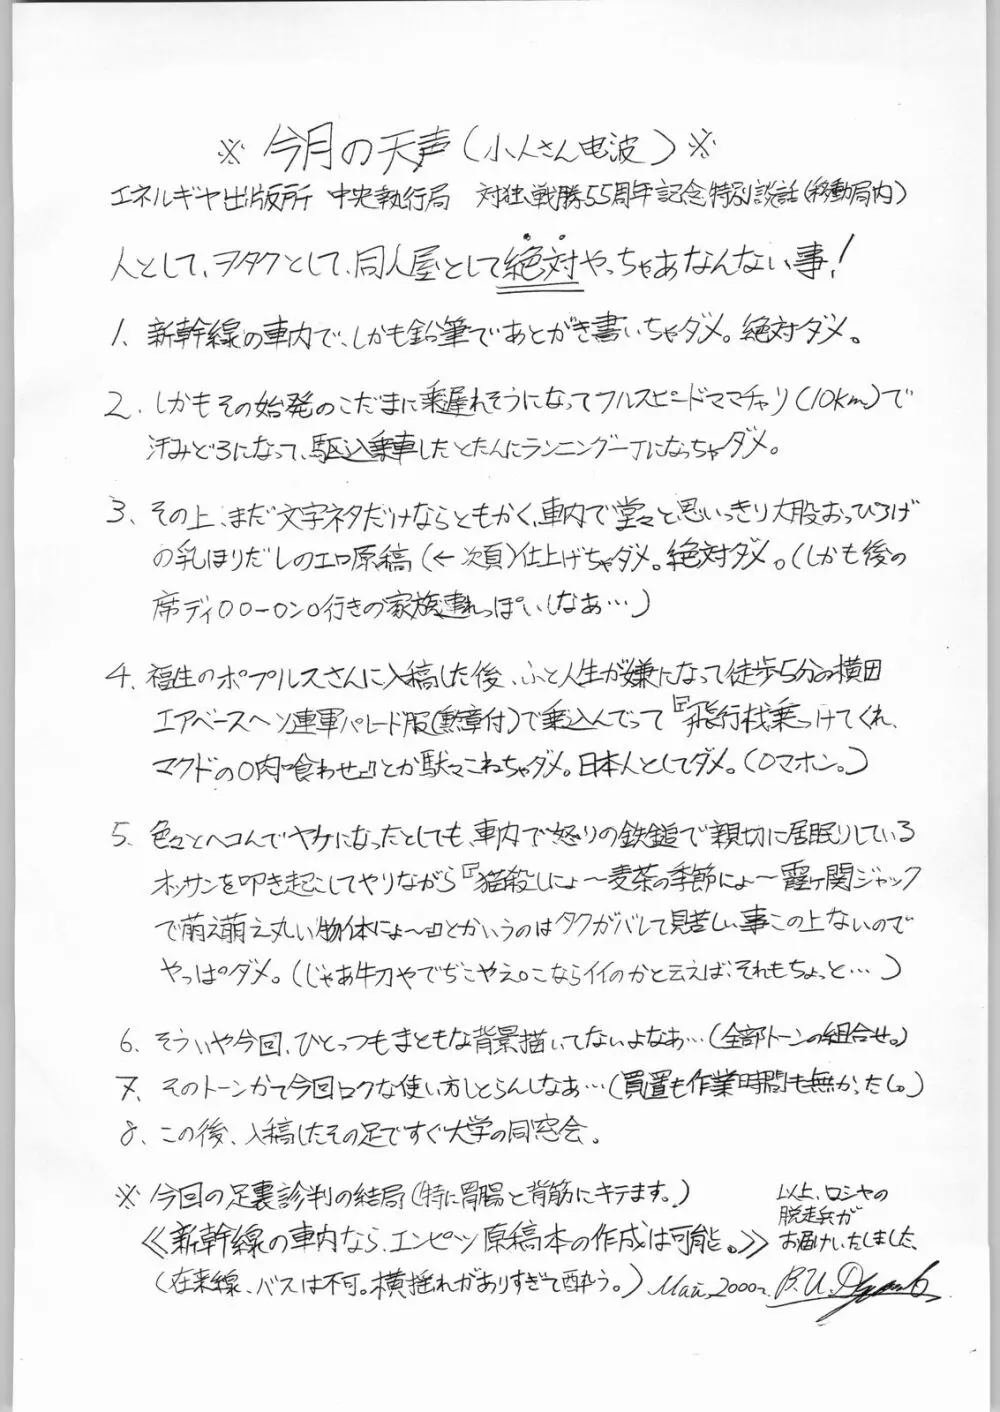 ※ 今月の天声(小人さん电波) ※
エネルギヤ出版所 中央執行局 対独戦勝55周年記念特別談話(移動局内)
人として、ヲタクとして、同人屋として絶対やっちゃあなんない事!
1、新幹線の車内で、しかも鉛筆であとがき書いちゃダメ。絶対ダメ。
2、しかもその始発のこだまに乗遅れそうになってフルスピードママチャリ(10km)で
汗みどろになって、駆込乗車したとたんにランニング一丁になっちゃダメ。
3、その上、まだ文字ネタだけならともかく、車内で堂々と思いっきり大股おっぴろげ
の乳ほりだしのエロ原稿(←次頁)仕上げちゃダメ。絶対ダメ。(しかも後の
席ディ〇〇ー〇ン〇行きの家族連れっぽいしなぁ…)
4、福生のポプルスさんに入稿した後、ふと人生が嫌になって徒歩5分の横田
エアベースへソ連軍パレード服(勲章付)で乗込んでって『飛行机乗っけてくれ、
マクドの〇肉喰わせ』とか駄々こねちゃダメ。日本人としてダメ。(〇マホン。)
5、色々とヘコんでヤケになったとしても、車内で怒りの鉄鎚で親切に居眠りしている
オッサンを叩き起こしてやりながら『猫殺しにょ〜麦茶の季節にょ〜霞ヶ関ジャック
で萌え萌え丸い物体にょ〜』とかいうのはタクがバレして見苦しい事この上ないので
やっぱダメ。(じゃあ牛刀やでぢこやえ。こならイイのかと云えば、それもちょっと…)
6、そういや今回、ひとっつもまともな背景描いてないよなぁ…(全部トーンの組合せ。)
7、そのトーンかて今回ロクな使い方しとらんしなぁ…(買置も作業時間も無かったし。)
8、この後、入稿したその足ですぐ大学の同窓会。
※ 今回の足裏診判の結局(特に胃腸と背筋にキテます。)
≪新幹線の車内なら、エンピツ原稿本の作成は可能。≫
(在来線、バスは不可。横揺れがありすぎて酔う。)
以上、ロシヤの
脱走兵が
お届けいたしました、
Май, 2000г.